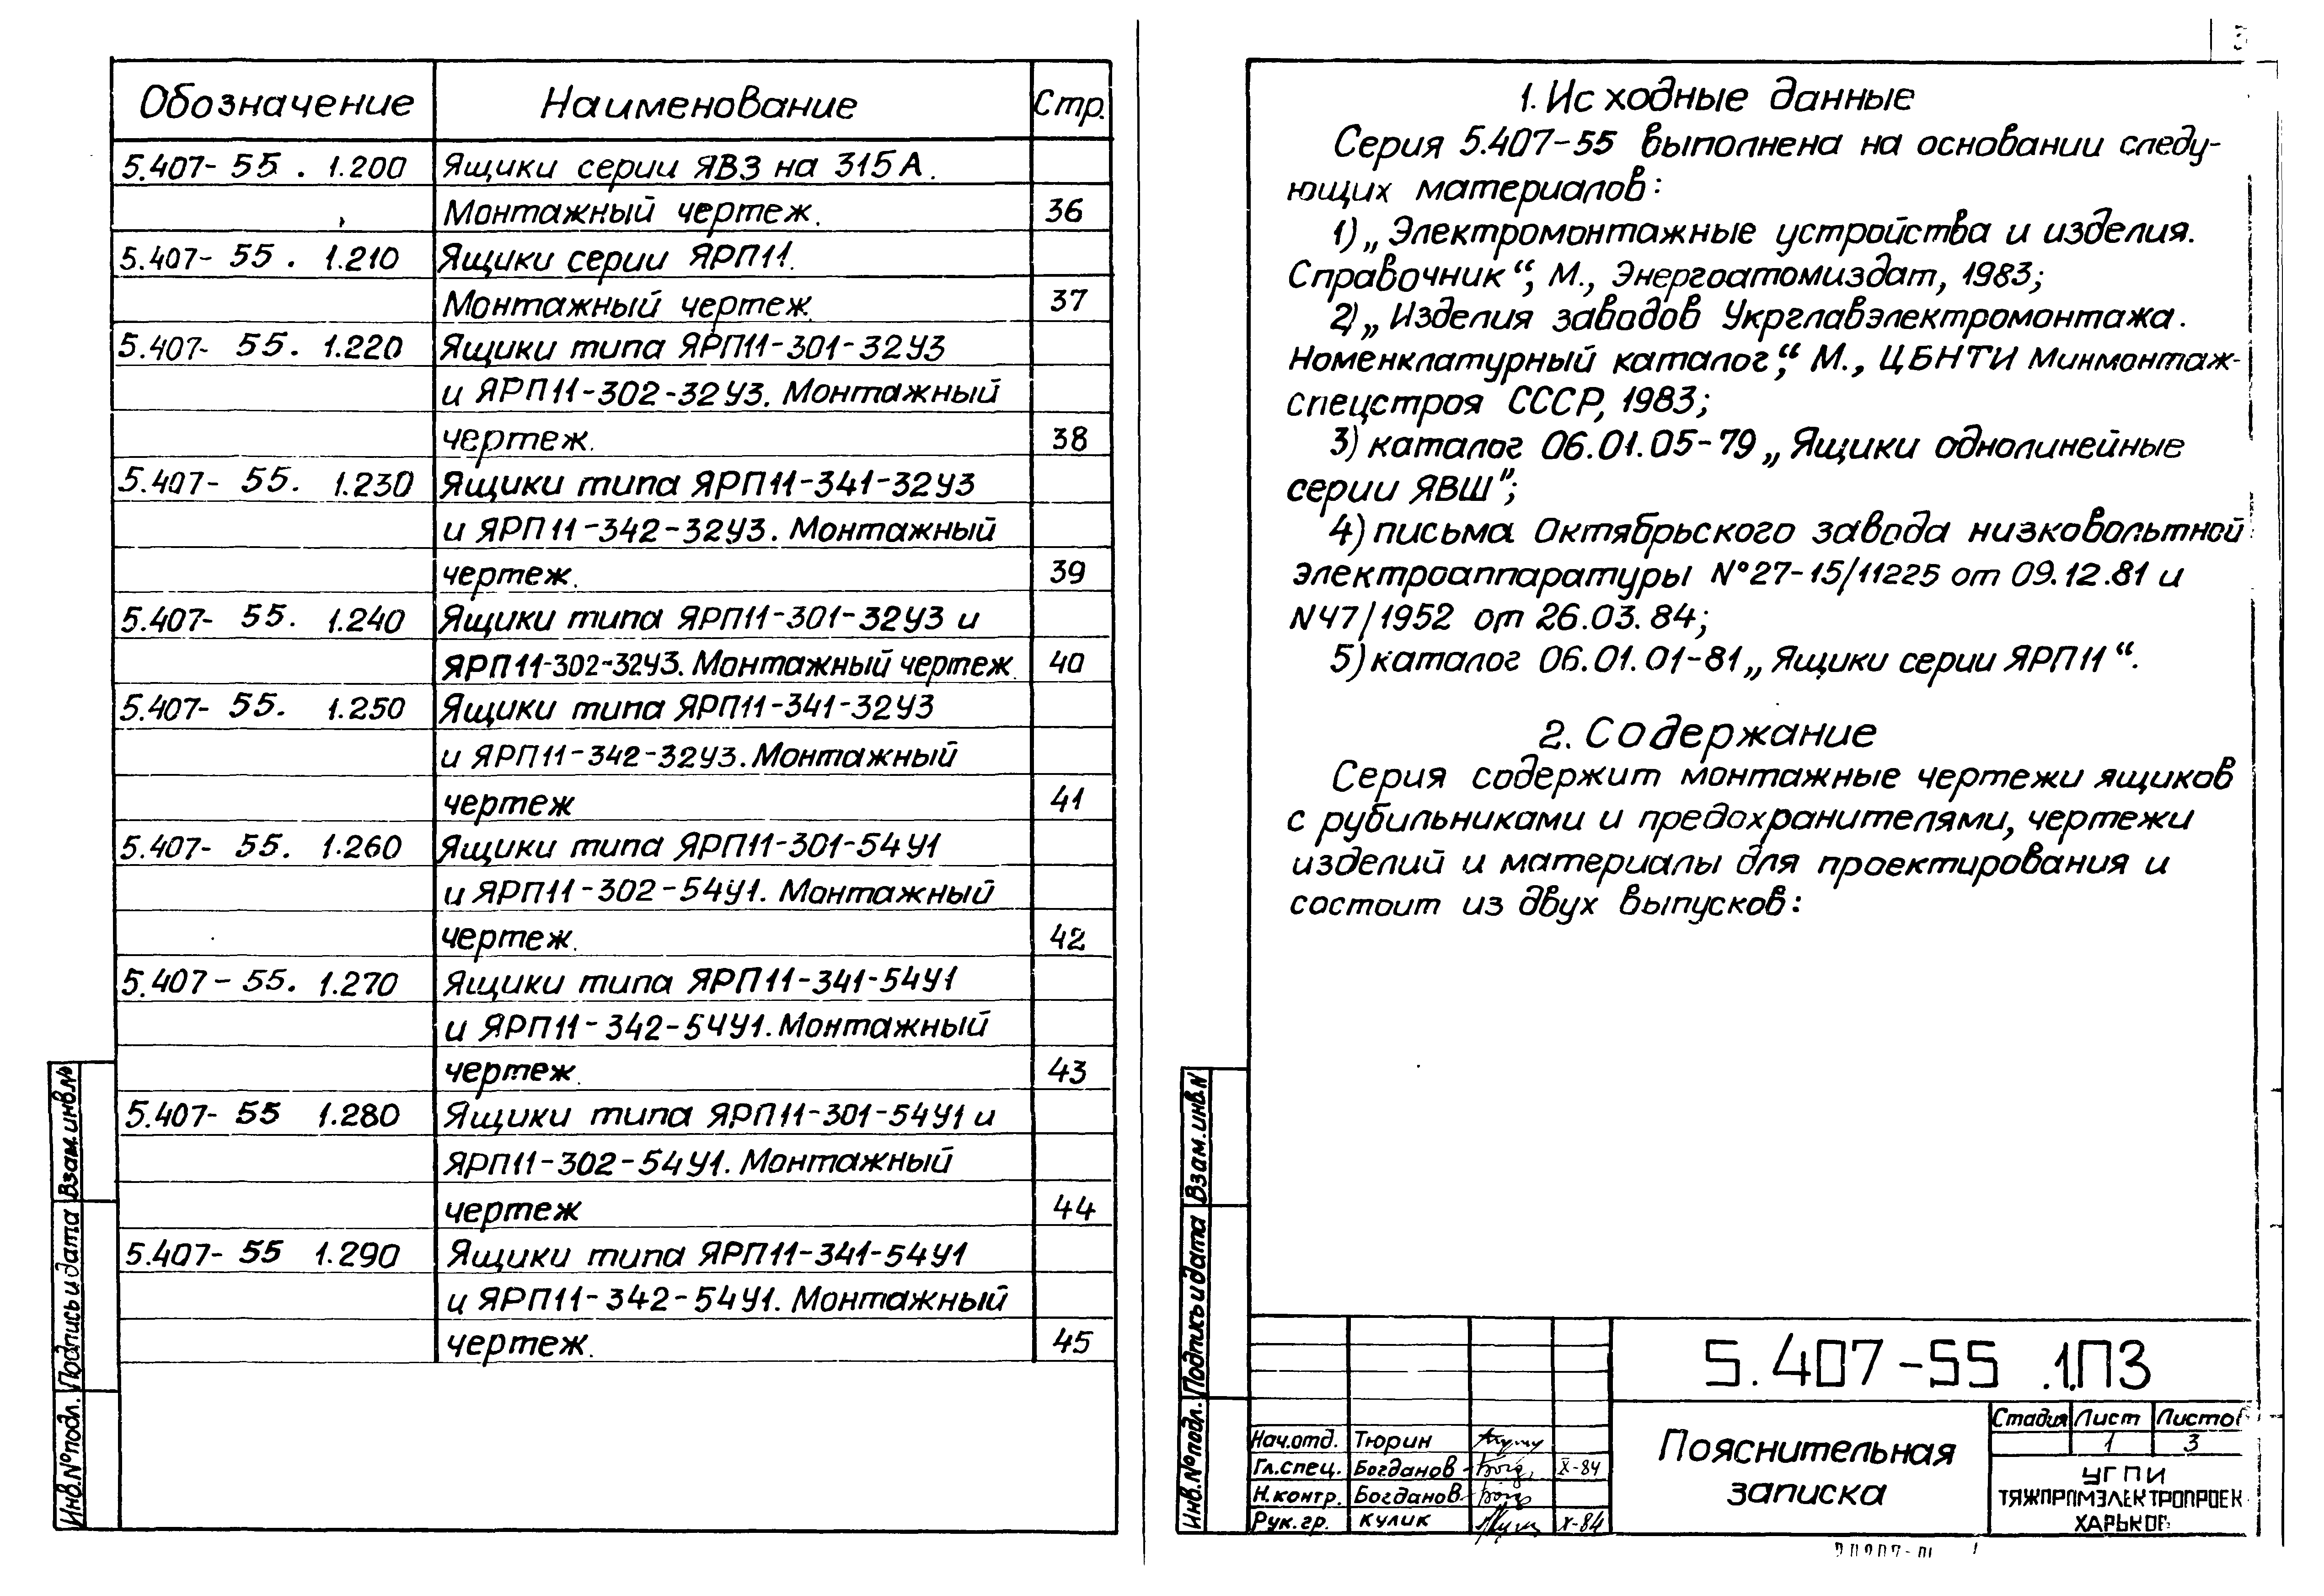 Обозначение Наименование Стр.
5.407-55.1.200 Ящики серии ЯВЗ на 315А.
Монтажный чертеж. 36
5.407-55.1.210 Ящики серии ЯРП11.
Монтажный чертеж. 37
5.407-55.1.220 Ящики типа ЯРП11-301-32У3
и ЯРП11-302-32У3. Монтажный
чертеж. 38
5.407-55.1.230 Ящики типа ЯРП11-341-32У3
и ЯРП11-342-32У3. Монтажный
чертеж. 39
5.407-55.1.240 Ящики типа ЯРП11-301-32У3 и
ЯРП11-302-32У3. Монтажный чертеж. 40
5.407-55.1.250 Ящики типа ЯРП11-341-32У3
и ЯРП11-342-32У3. Монтажный
чертеж 41
5.407-55.1.260 Ящики типа ЯРП11-301-54У1
и ЯРП11-302-54У1. Монтажный
чертеж. 42
5.407-55.1.270 Ящики типа ЯРП11-341-54У1
и ЯРП11-342-54У1. Монтажный
чертеж. 43
5.407-55 1.280 Ящики типа ЯРП11-301-54У1 и
ЯРП11-302-54У1. Монтажный
чертеж 44
5.407-55 1.290 Ящики типа ЯРП11-341-54У1
и ЯРП11-342-54У1. Монтажный
чертеж. 45
Взам.инв.№
Подпись и дата
Инв.№подл.
3
1. Исходные данные
Серия 5.407-55 выполнена на основании следу-
ющих материалов:
1) „Электромонтажные устройства и изделия.
Справочник“, М., Энергоатомиздат, 1983;
2) „Изделия заводов Укрглавэлектромонтажа.
Номенклатурный каталог“, М., ЦБНТИ Минмонтаж-
спецстроя СССР, 1983;
3) каталог 06.01.05-79 „Ящики однолинейные
серии ЯВШ";
4) письма Октябрьского завода низковольтной
электроаппаратуры №27-15/11225 от 09.12.81 и
N47/1952 от 26.03.84;
5) каталог 06.01.01-81 „Ящики серии ЯРП11“.
2. Содержание
Серия содержит монтажные чертежи ящиков
с рубильниками и предохранителями, чертежи
изделий и материалы для проектирования и
состоит из двух выпусков:
Взам.инв.N
Подпись и дата
Инв.№подл.
5.407-55 .1.ПЗ
Нач.отд. Тюрин
Гл.спец. Богданов X-84
Н.контр. Богданов
Рук.гр. Кулик X-84
Пояснительная
записка
Стадия Лист Листов
1 3
УГПИ
ТЯЖПРОМЭЛЕКТРОПРОЕК
ХАРЬКОВ